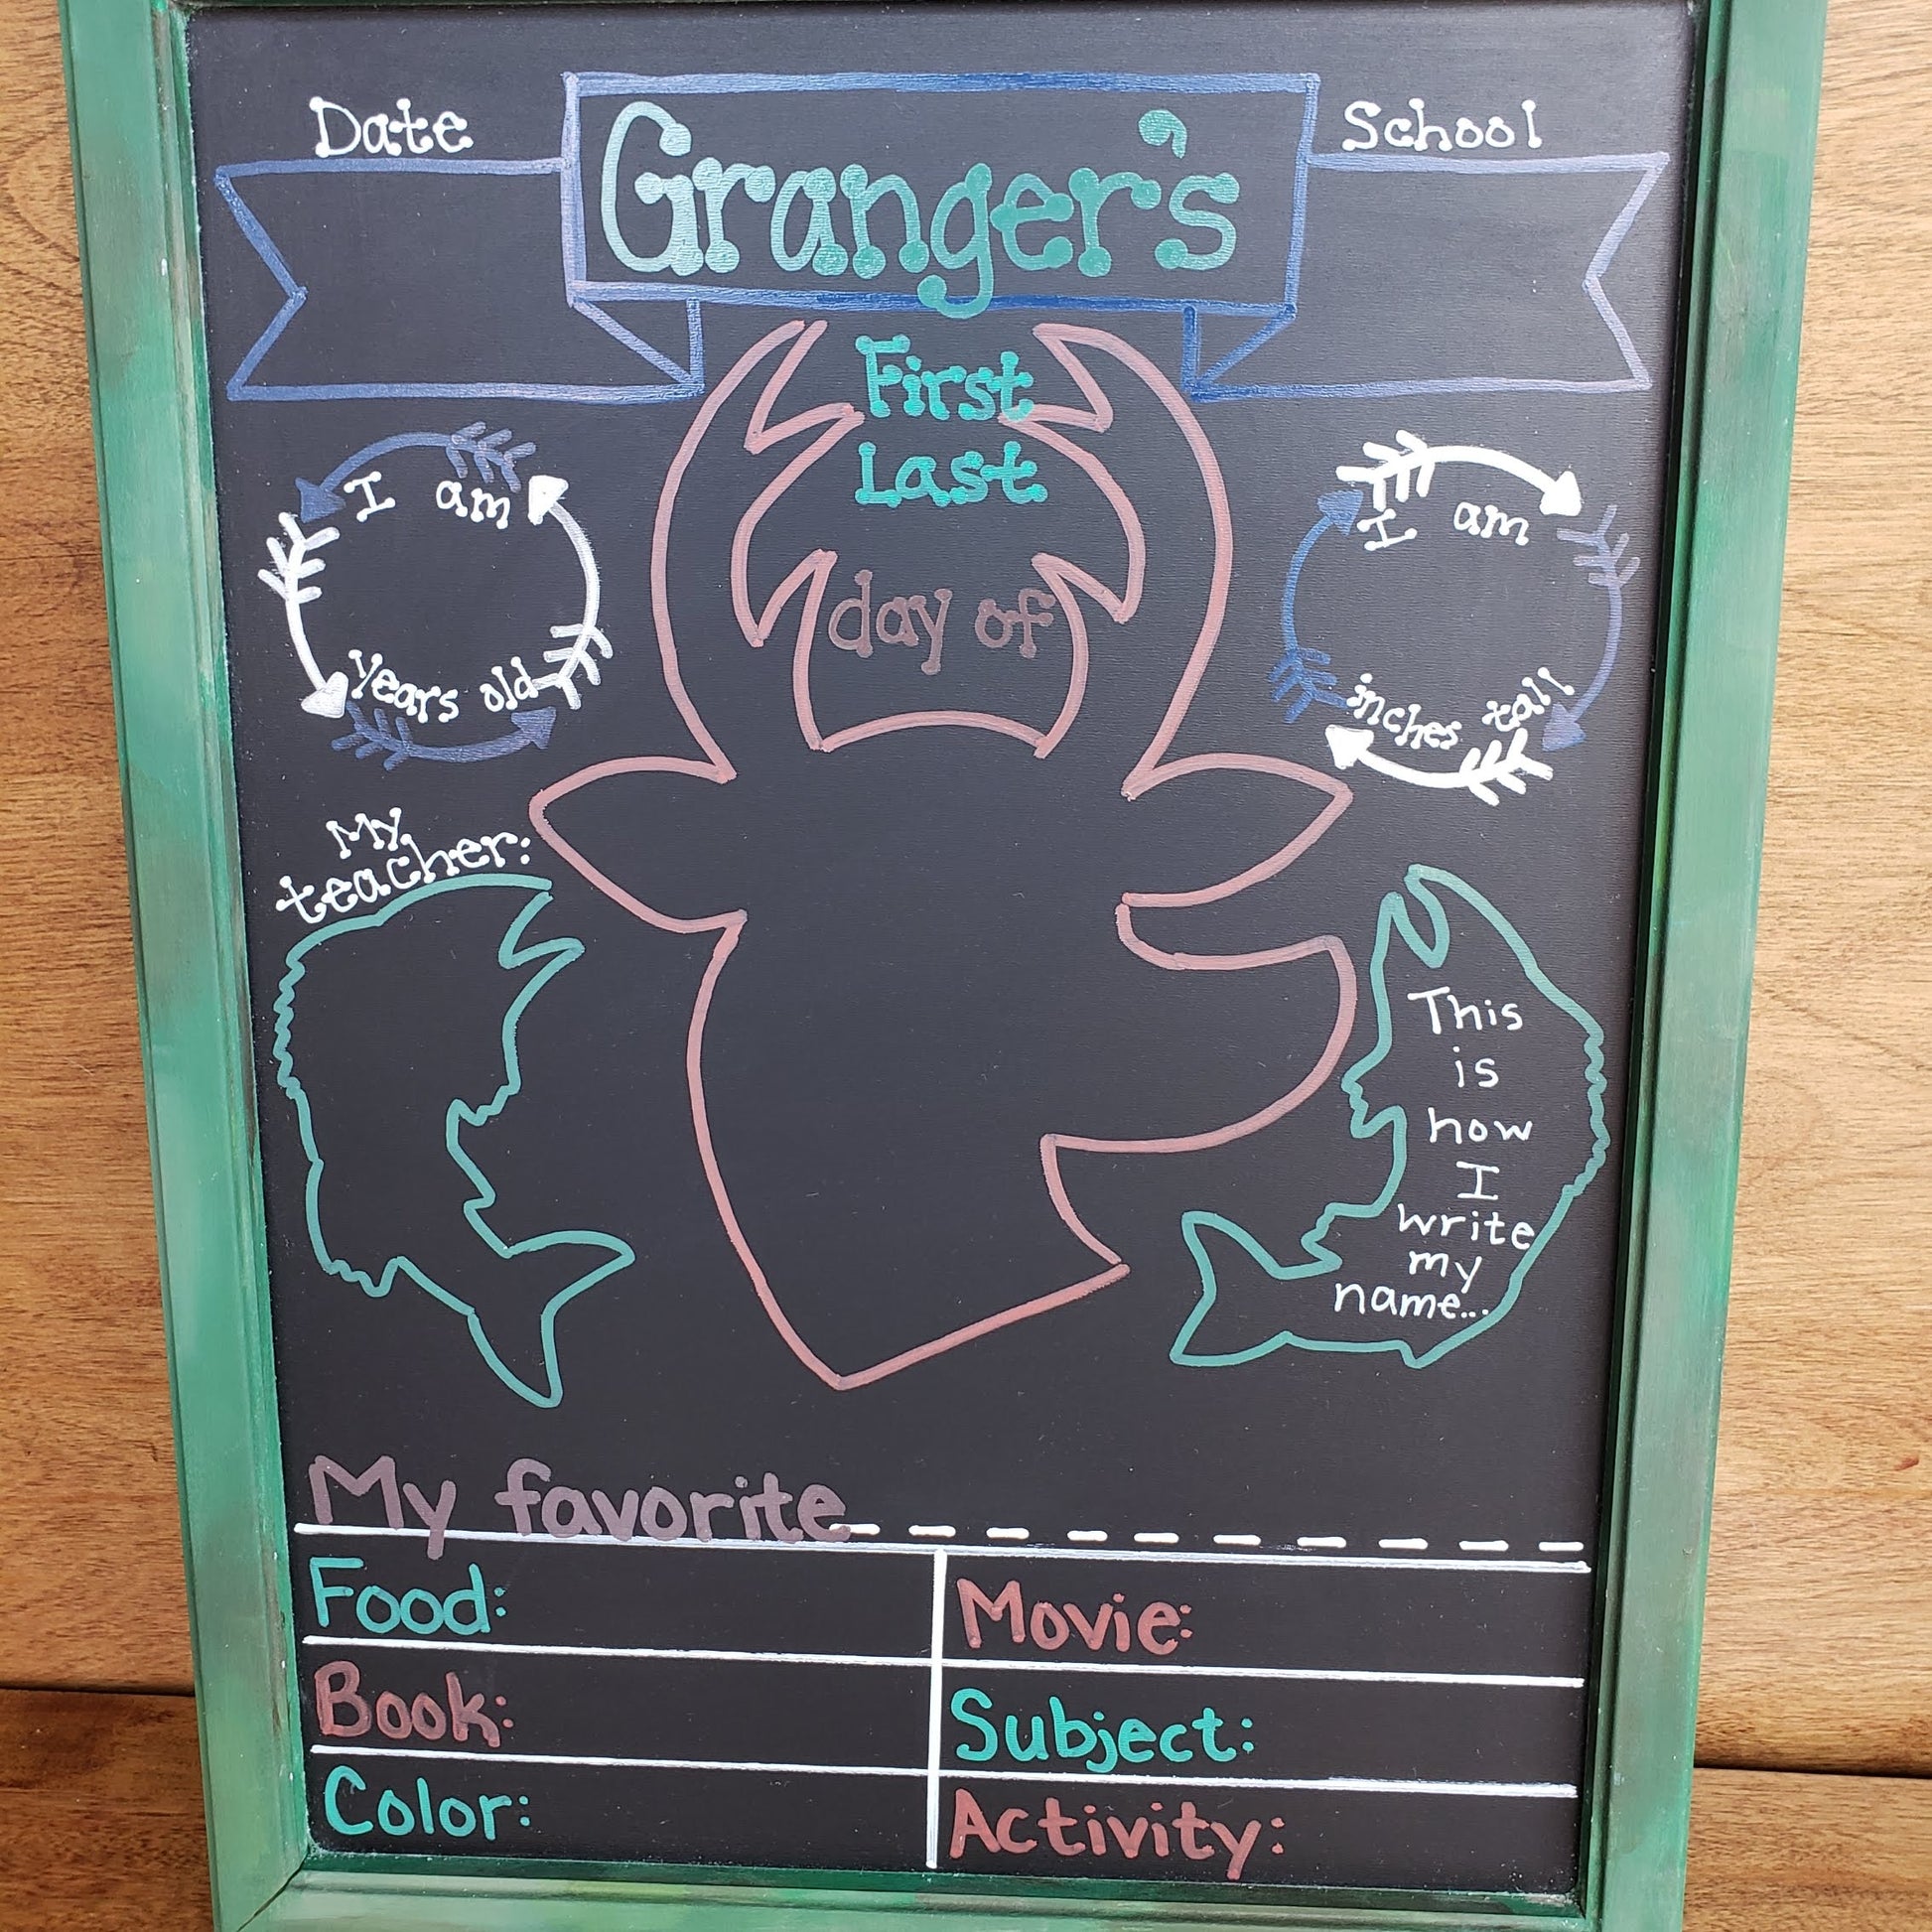 Date
Granger's
School
First
Last
day of
I am
years old
I am
inches tall
My
teacher:
This
is
how
I
write
my
name...
My favorite
Food:
Movie:
Book:
Subject:
Color:
Activity: